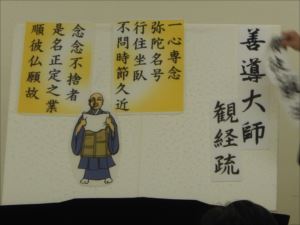 善導大師
観経疏
一心専念
弥陀名号
行住坐臥
不問時節久近
念念不捨者
是名正定之業
順彼仏願故